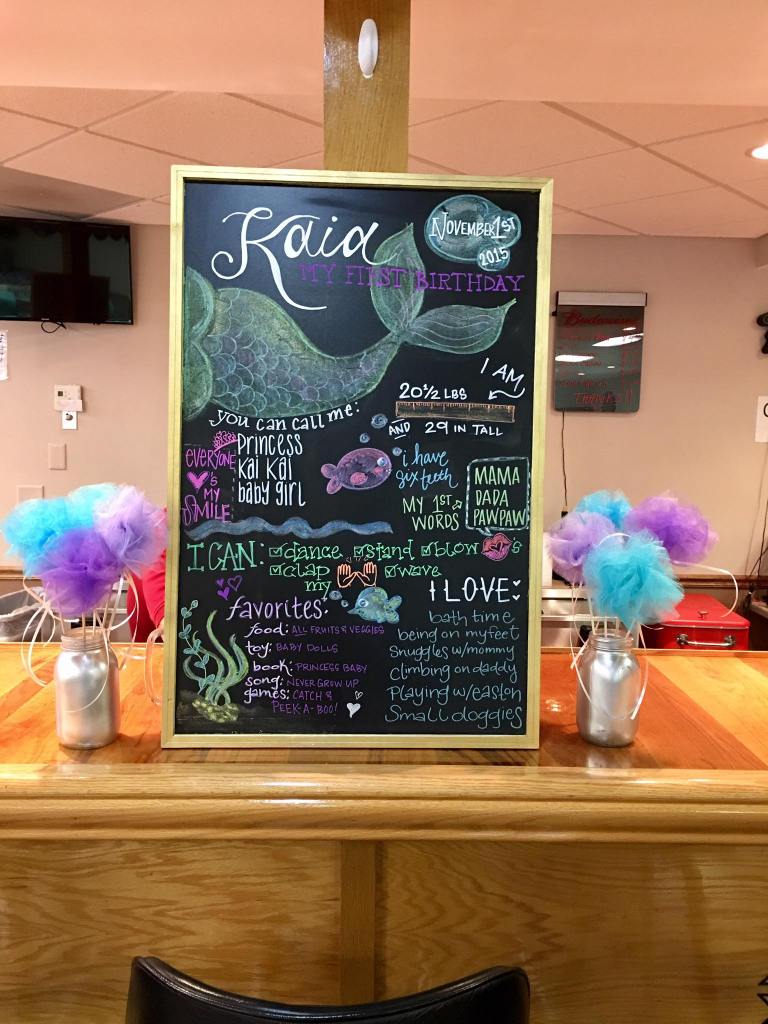 Kaia
NOVEMBER 1ST
2015
MY FIRST BIRTHDAY
I AM
20½ LBS
AND 29 IN TALL
you can call me:
princess
Kai Kai
baby girl
EVERYONE
♥'S
MY
SMILE
i have
six teeth
MY 1ST
WORDS
MAMA
DADA
PAWPAW
I CAN: ☑dance ☑stand ☑blow 💋s
☑clap my ☑wave
favorites:
food: ALL FRUITS & VEGGIES
toy: BABY DOLLS
book: PRINCESS BABY
song: NEVER GROW UP
games: CATCH &
PEEK-A-BOO!
I LOVE:
bath time
being on my feet
Snuggles w/mommy
Climbing on daddy
Playing w/easton
Small doggies
Budweiser